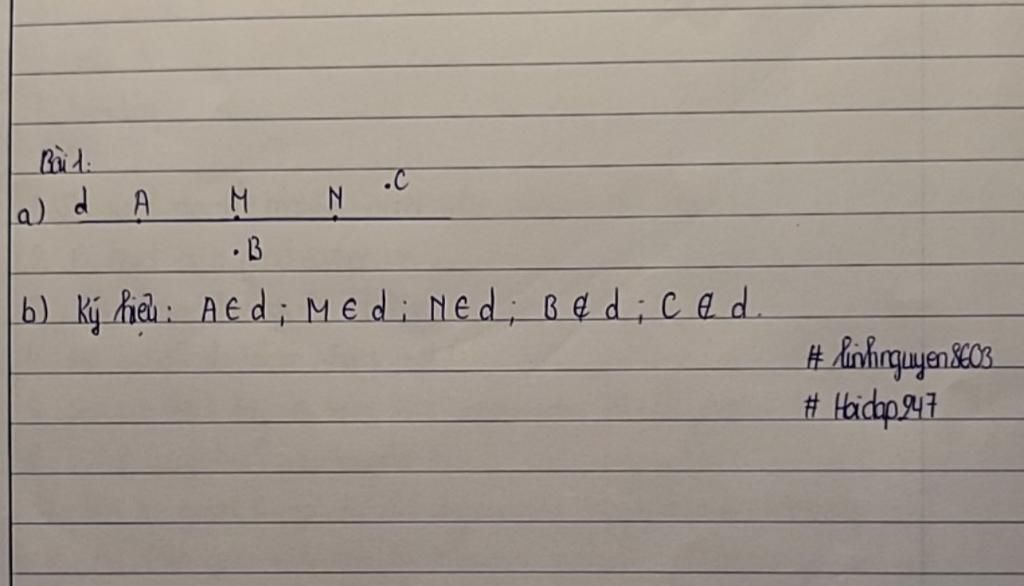 Bài 1:
.C
a) d A M N
.B
b) Ký hiệu: A ∈ d; M ∈ d; N ∈ d; B ∉ d; C ∉ d.
# linhnguyen8603
# Hoidap247